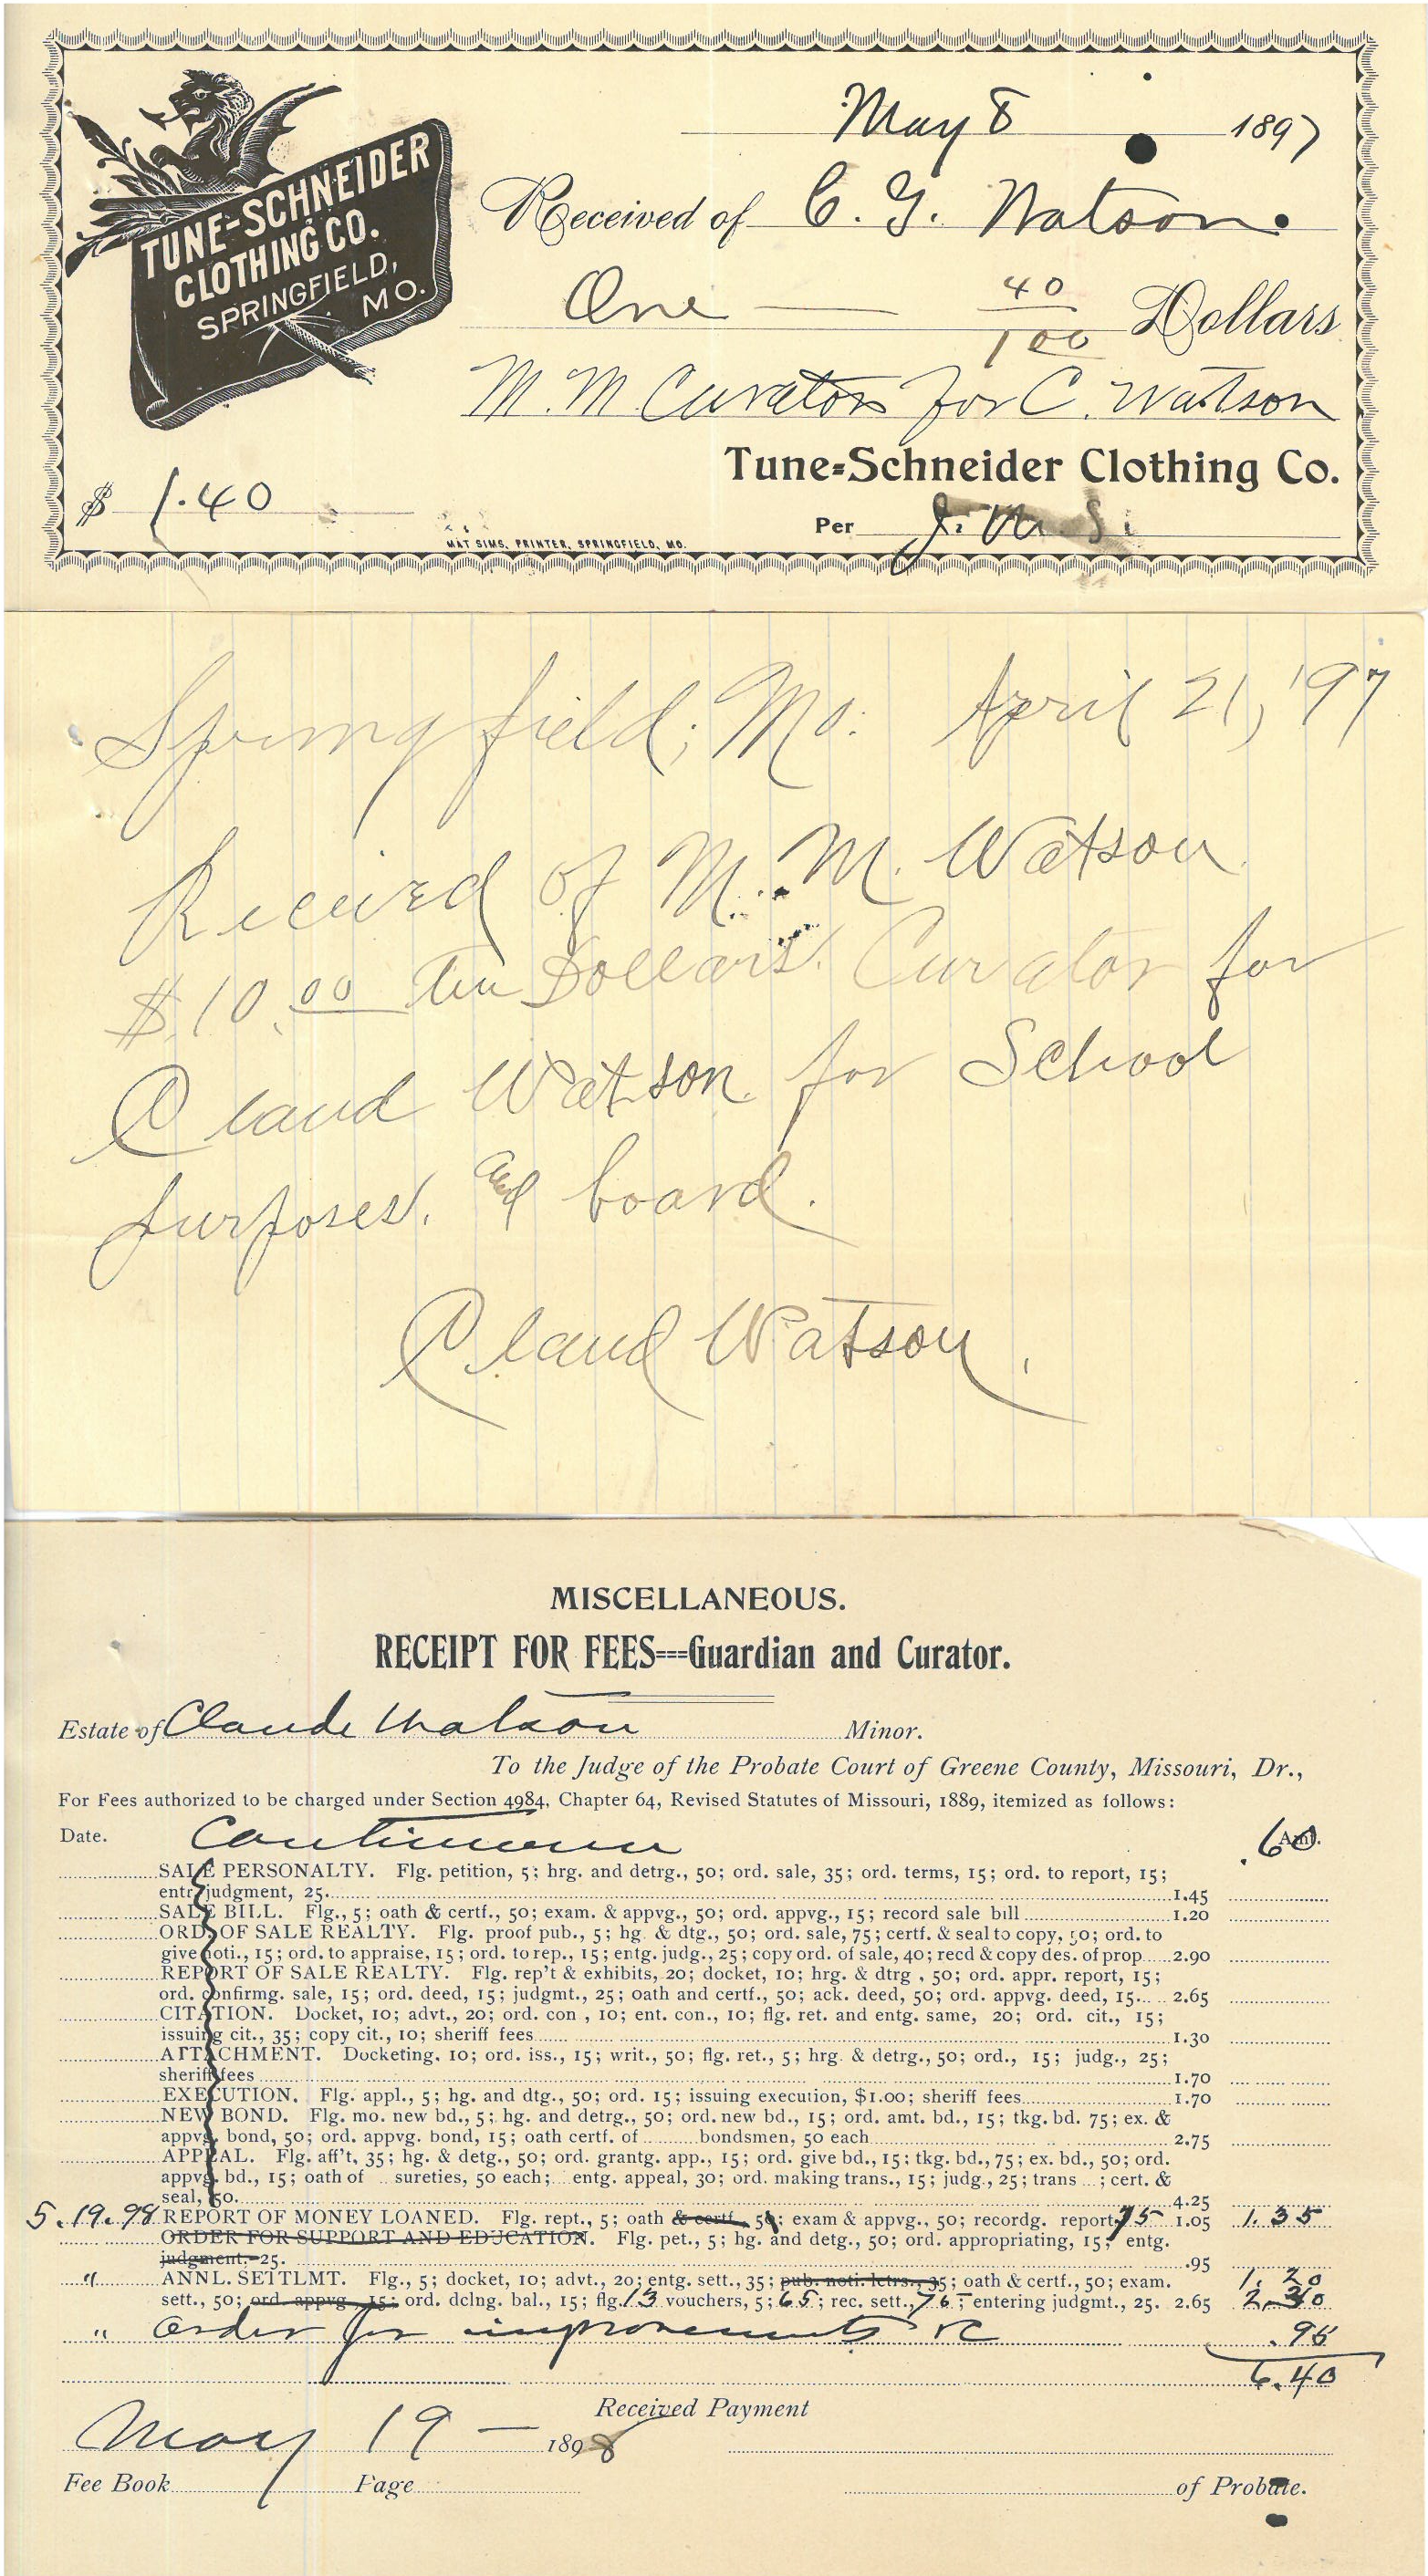 TUNE-SCHNEIDER
CLOTHING CO.
SPRINGFIELD,
MO.
May 8 1897
Received of C. G. Watson.
One 40/100 Dollars
M. M Curator for C. Watson
Tune=Schneider Clothing Co.
$ 1.40
Per J. M. S.
MAT SIMS, PRINTER, SPRINGFIELD, MO.
Springfield, Mo. April 21, '97
Received of M. M. Watson
$10.00 Ten Dollars. Curator for
Claud Watson for School
purposes. and board.
Claud Watson.
MISCELLANEOUS.
RECEIPT FOR FEES===Guardian and Curator.
Estate of Claude Watson Minor.
To the Judge of the Probate Court of Greene County, Missouri, Dr.,
For Fees authorized to be charged under Section 4984, Chapter 64, Revised Statutes of Missouri, 1889, itemized as follows:
Date. Continuance .60 Amt.
SALE PERSONALTY. Flg. petition, 5; hrg. and detrg., 50; ord. sale, 35; ord. terms, 15; ord. to report, 15;
entr judgment, 25. 1.45
SALE BILL. Flg., 5; oath & certf., 50; exam. & appvg., 50; ord. appvg., 15; record sale bill 1.20
ORD. OF SALE REALTY. Flg. proof pub., 5; hg. & dtg., 50; ord. sale, 75; certf. & seal to copy, 50; ord. to
give noti., 15; ord. to appraise, 15; ord. to rep., 15; entg. judg., 25; copy ord. of sale, 40; recd & copy des. of prop 2.90
REPORT OF SALE REALTY. Flg. rep't & exhibits, 20; docket, 10; hrg. & dtrg , 50; ord. appr. report, 15;
ord. confirmg. sale, 15; ord. deed, 15; judgmt., 25; oath and certf., 50; ack. deed, 50; ord. appvg. deed, 15. 2.65
CITATION. Docket, 10; advt., 20; ord. con , 10; ent. con., 10; flg. ret. and entg. same, 20; ord. cit., 15;
issuing cit., 35; copy cit., 10; sheriff fees 1.30
ATTACHMENT. Docketing. 10; ord. iss., 15; writ., 50; flg. ret., 5; hrg. & detrg., 50; ord., 15; judg., 25;
sheriff fees 1.70
EXECUTION. Flg. appl., 5; hg. and dtg., 50; ord. 15; issuing execution, $1.00; sheriff fees 1.70
NEW BOND. Flg. mo. new bd., 5; hg. and detrg., 50; ord. new bd., 15; ord. amt. bd., 15; tkg. bd. 75; ex. &
appvg. bond, 50; ord. appvg. bond, 15; oath certf. of bondsmen, 50 each 2.75
APPEAL. Flg. aff't, 35; hg. & detg., 50; ord. grantg. app., 15; ord. give bd., 15; tkg. bd., 75; ex. bd., 50; ord.
appvg. bd., 15; oath of sureties, 50 each; entg. appeal, 30; ord. making trans., 15; judg., 25; trans ; cert. &
seal, 50. 4.25
5.19.98 REPORT OF MONEY LOANED. Flg. rept., 5; oath & certf., 5; exam & appvg., 50; recordg. report 75 1.05 1.35
ORDER FOR SUPPORT AND EDUCATION. Flg. pet., 5; hg. and detg., 50; ord. appropriating, 15; entg.
judgment. 25. .95
" ANNL. SETTLMT. Flg., 5; docket, 10; advt., 20; entg. sett., 35; pub. noti. letrs., 35; oath & certf., 50; exam. 1.20
sett., 50; ord. appvg., 15; ord. dclng. bal., 15; flg. 13 vouchers, 5; 65; rec. sett., 76; entering judgmt., 25. 2.65 2.30
" Order for improvements &c .95
6.40
Received Payment
May 19 — 1898
Fee Book Page of Probate.